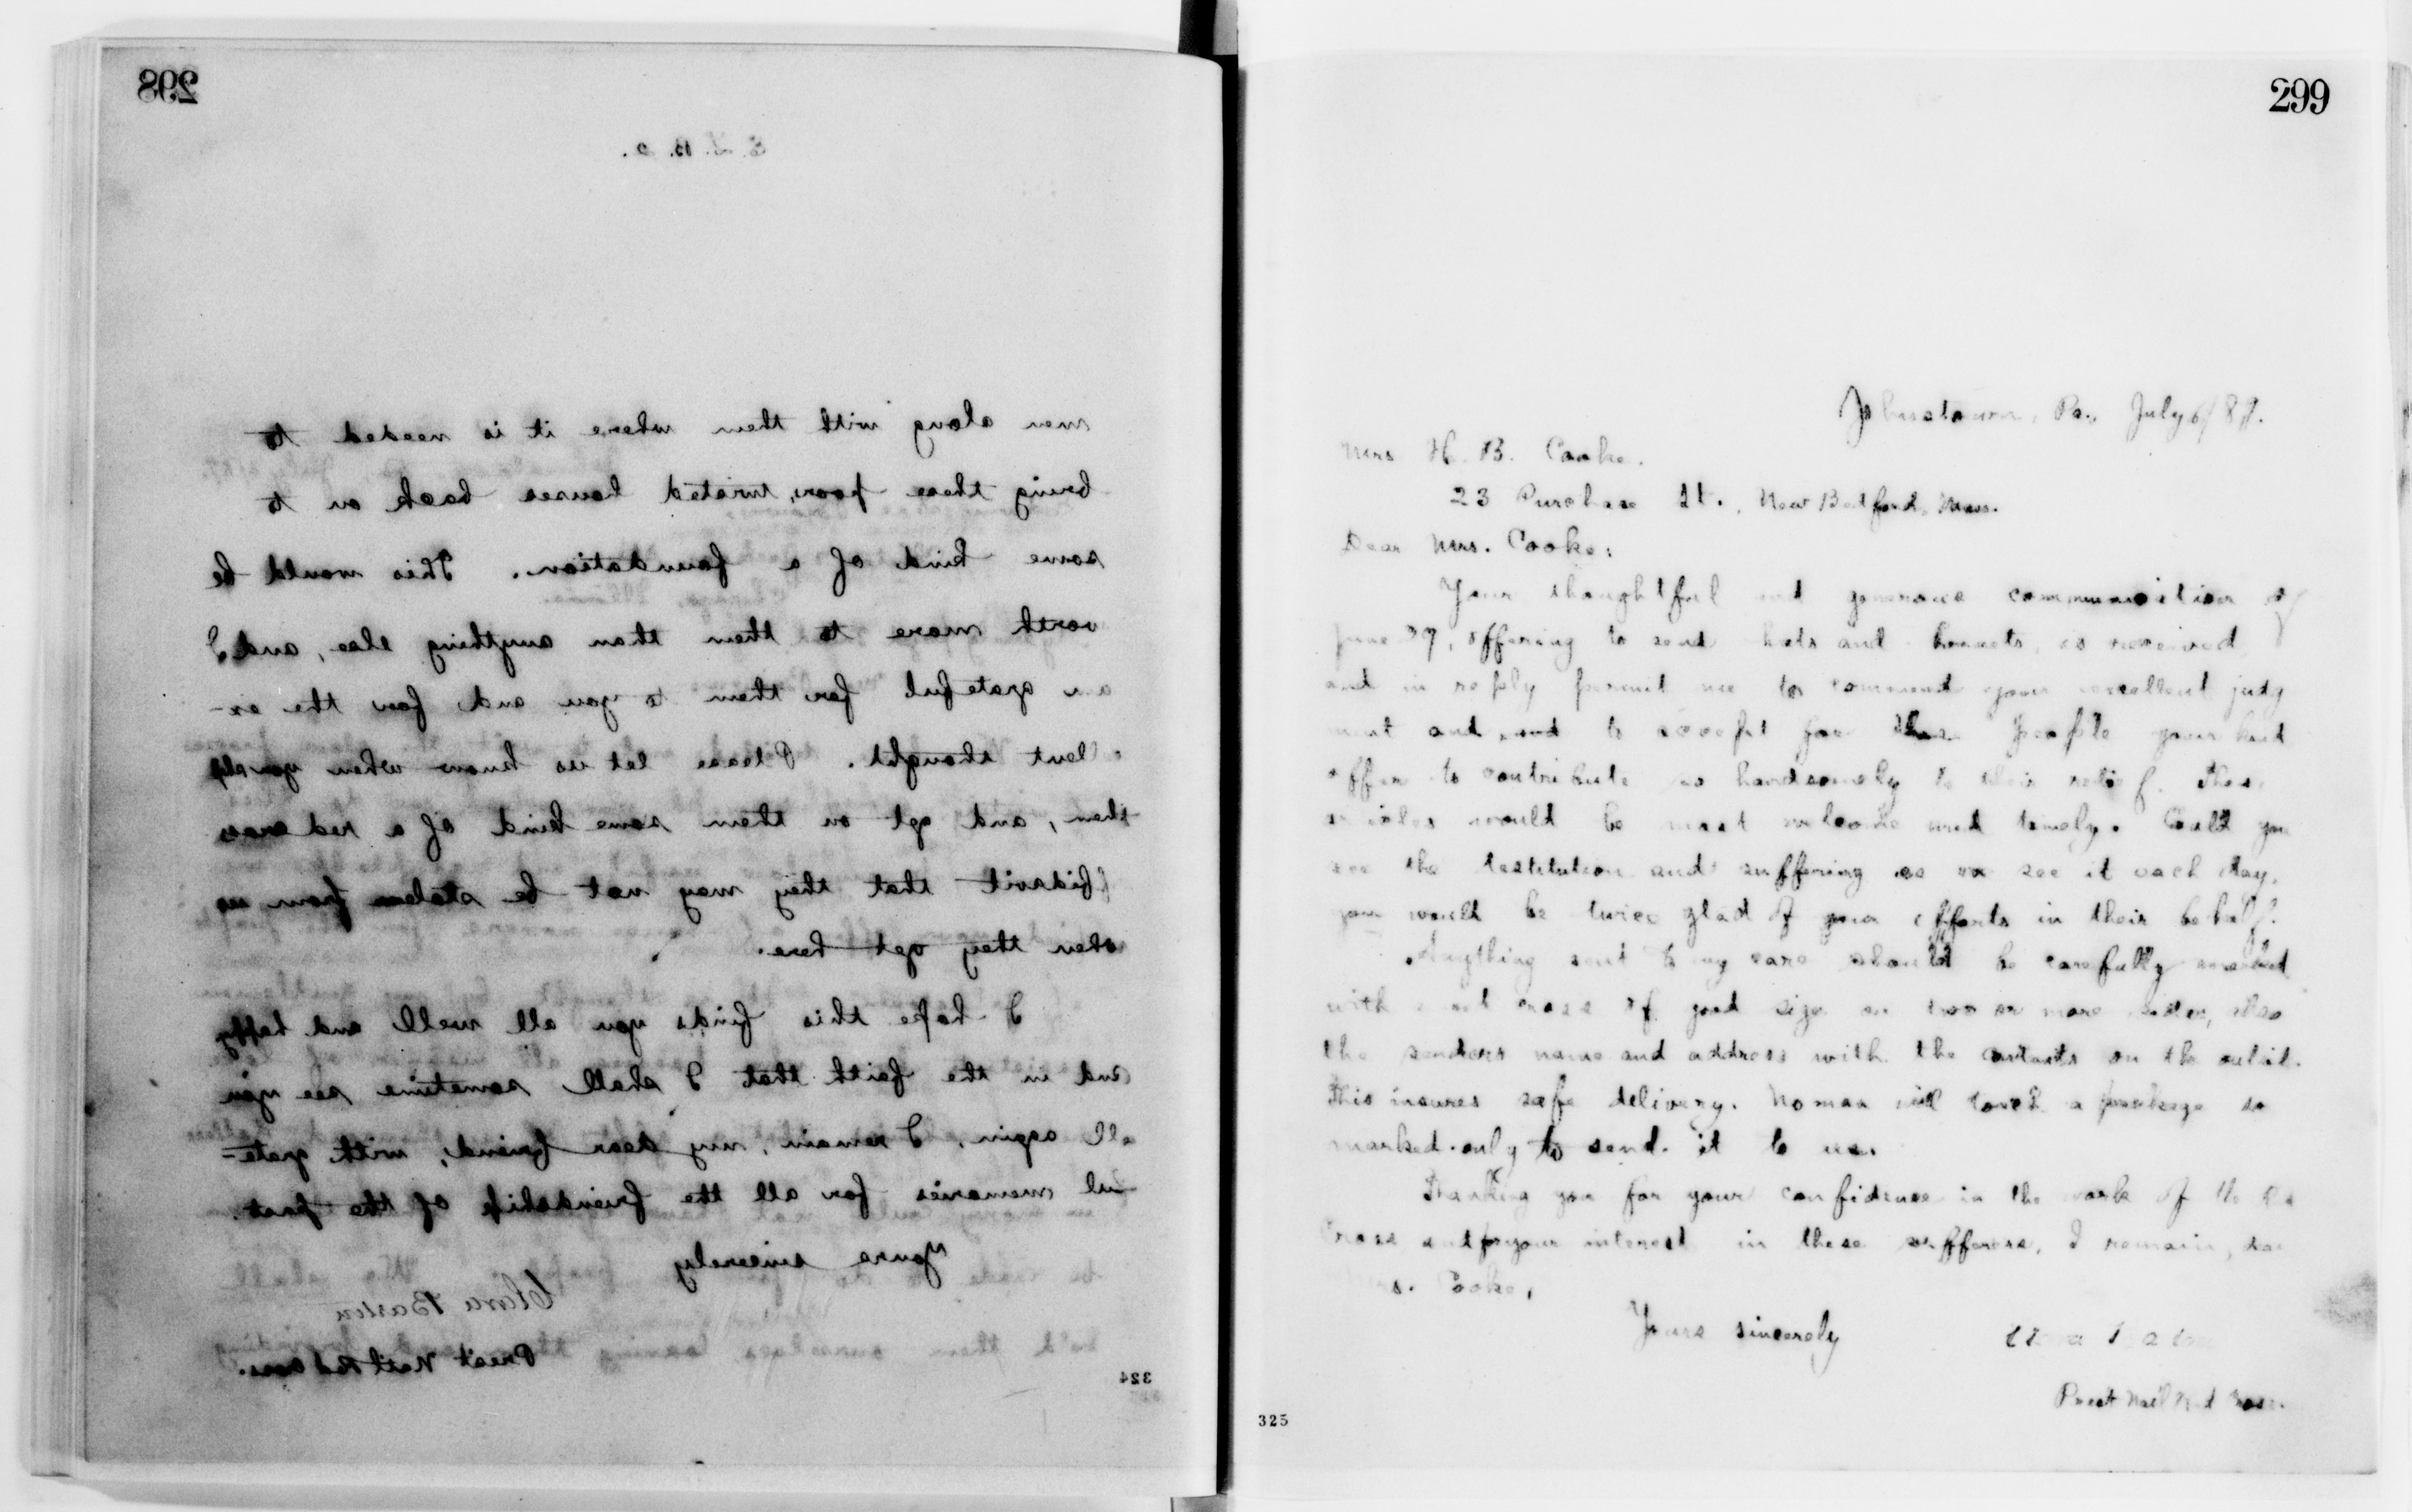 298
E. L. B. 2.
men along with them where it is needed to
bring these poor, twisted houses back on to
some kind of a foundation. This would be
worth more to them than anything else, and I
am grateful for them to you and for the ex-
cellent thought. Please let us know when you ship
them, and get on them some kind of a red cross
affidavit that they may not be stolen from us
when they get here.
I hope this finds you all well and happy
and in the faith that I shall sometime see you
all again, I remain, my dear friend, with grate-
ful memories for all the friendship of the past.
Yours sincerely
Clara Barton
Prest Natl Red Cross.
324
299
Johnstown, Pa., July 6/89.
Mrs H. B. Cooke.
23 Purchase St., New Bedford, Mass.
Dear Mrs. Cooke:
Your thoughtful and generous communication of
June 29, offering to send hats and bonnets, is received
and in reply permit me to commend your excellent judg
ment and to accept for these people your kind
offer to contribute so handsomely to their relief. These
articles would be most welcome and timely. Could you
see the destitution and suffering as we see it each day,
you would be twice glad of your efforts in their behalf.
Anything sent to my care should be carefully marked
with a red cross of good size on two or more sides, also
the senders name and address with the contents on the outsid.
This insures safe delivery. No man will touch a package so
marked only to send it to us.
Thanking you for your confidence in the work of the Red
Cross and for your interest in these sufferers, I remain, dear
Mrs. Cooke,
Yours sincerely
Clara Barton
Prest Natl Red Cross.
325